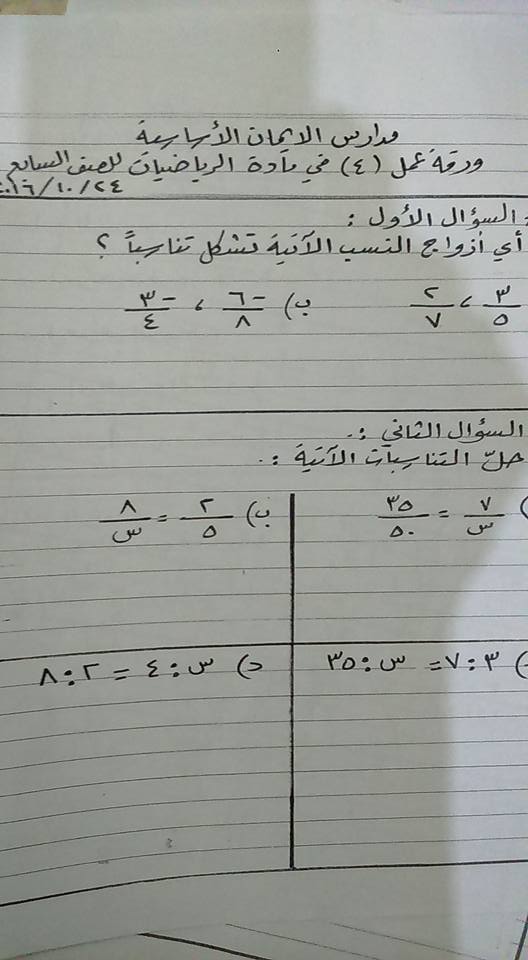 مدارس الايمان الأساسية
ورقة عمل (٤) في مادة الرياضيات للصف السابع
٢٠١٦/١٠/٢٤
السؤال الأول :
أي أزواج النسب الآتية تشكل تناسباً ؟
٣/٥ ، ٢/٧ ب) -٦/٨ ، -٣/٤
السؤال الثاني :.
حلّ التناسبات الآتية :.
) ٧/س = ٣٥/٥٠ ب) ٢/٥ = ٨/س
) ٣ : ٧ = س : ٣٥ د) س : ٤ = ٢ : ٨